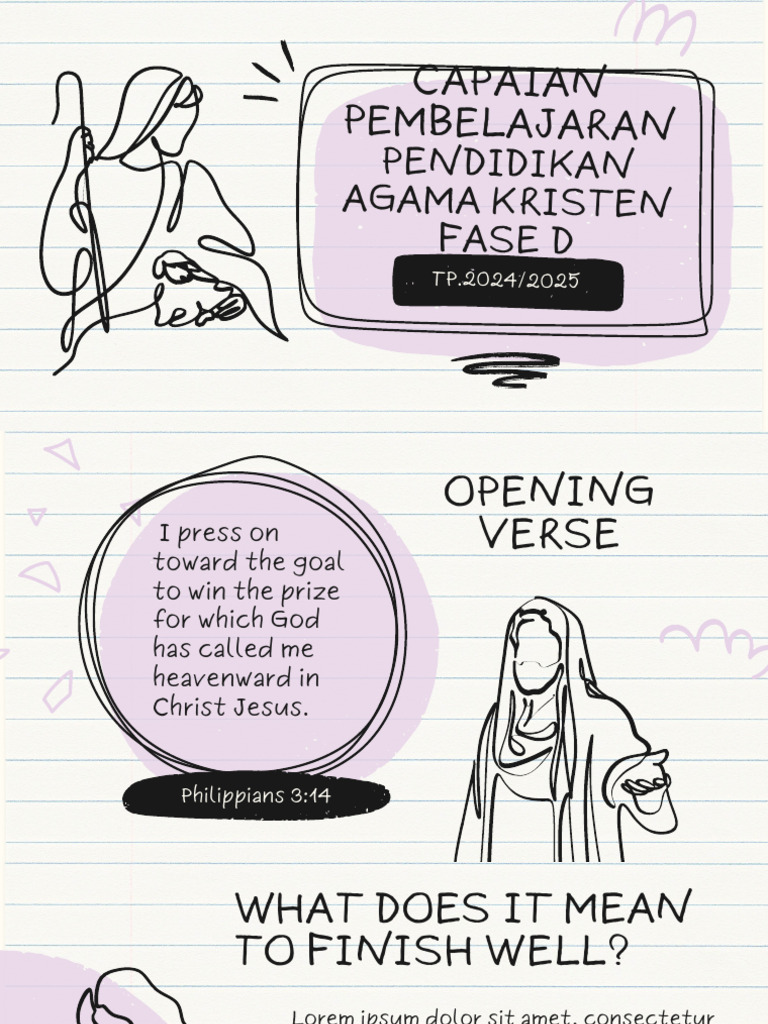 CAPAIAN
PEMBELAJARAN
PENDIDIKAN
AGAMA KRISTEN
FASE D
TP.2024/2025
OPENING
VERSE
I press on
toward the goal
to win the prize
for which God
has called me
heavenward in
Christ Jesus.
Philippians 3:14
WHAT DOES IT MEAN
TO FINISH WELL?
Lorem ipsum dolor sit amet, consectetur